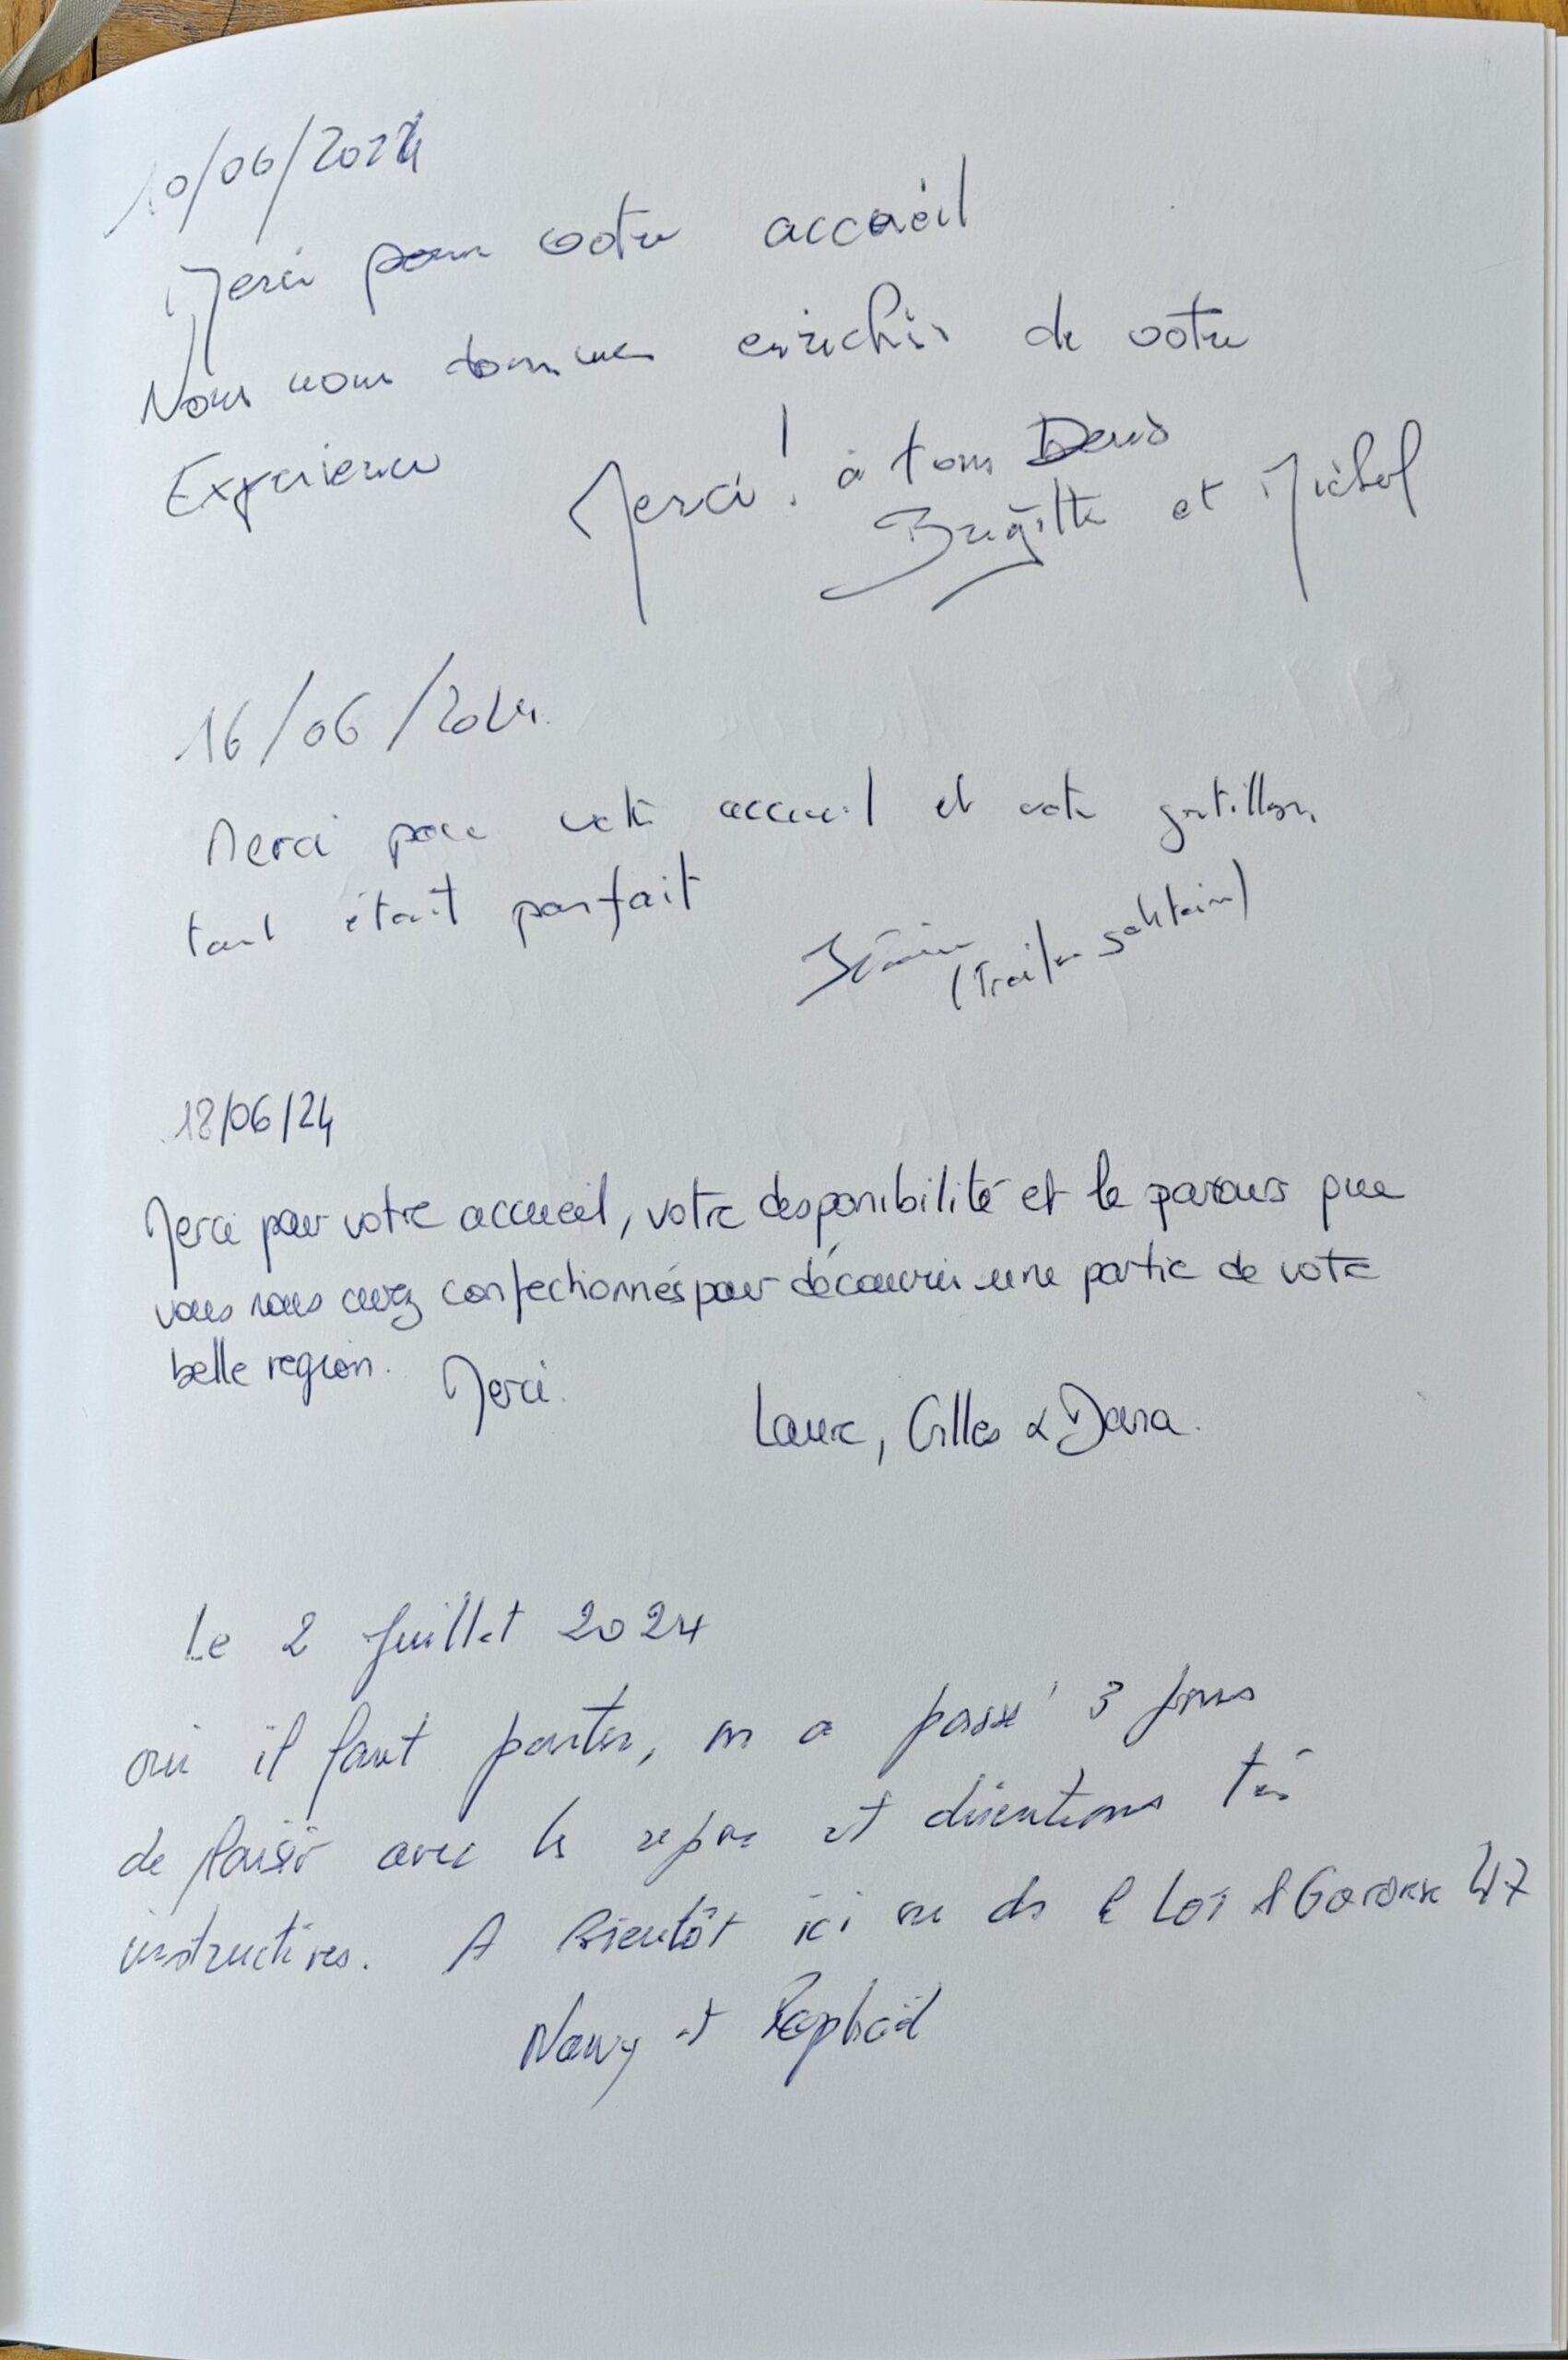 10/06/2024
Merci pour votre accueil
Nous nous sommes enrichis de votre
Experience Merci ! à tous Deux
Brigitte et Michel
16/06/2024.
Merci pour votre accueil et votre gentillesse
tout était parfait
(Trailer solitaire)
18/06/24
Merci pour votre accueil, votre disponibilité et le parcours que
vous nous avez confectionnés pour découvrir une partie de votre
belle region. Merci.
Laure, Gilles & Dana.
Le 2 Juillet 2024
oui il faut partir, on a passé 3 jours
de plaisir avec les repas et discutions très
instructives. A Bientôt ici ou ds le Lot & Garonne 47
Nany et Raphaël